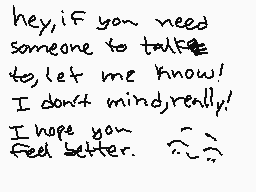 hey, if you need
someone to talk
to, let me know!
I don't mind, really!
I hope you
feel better.